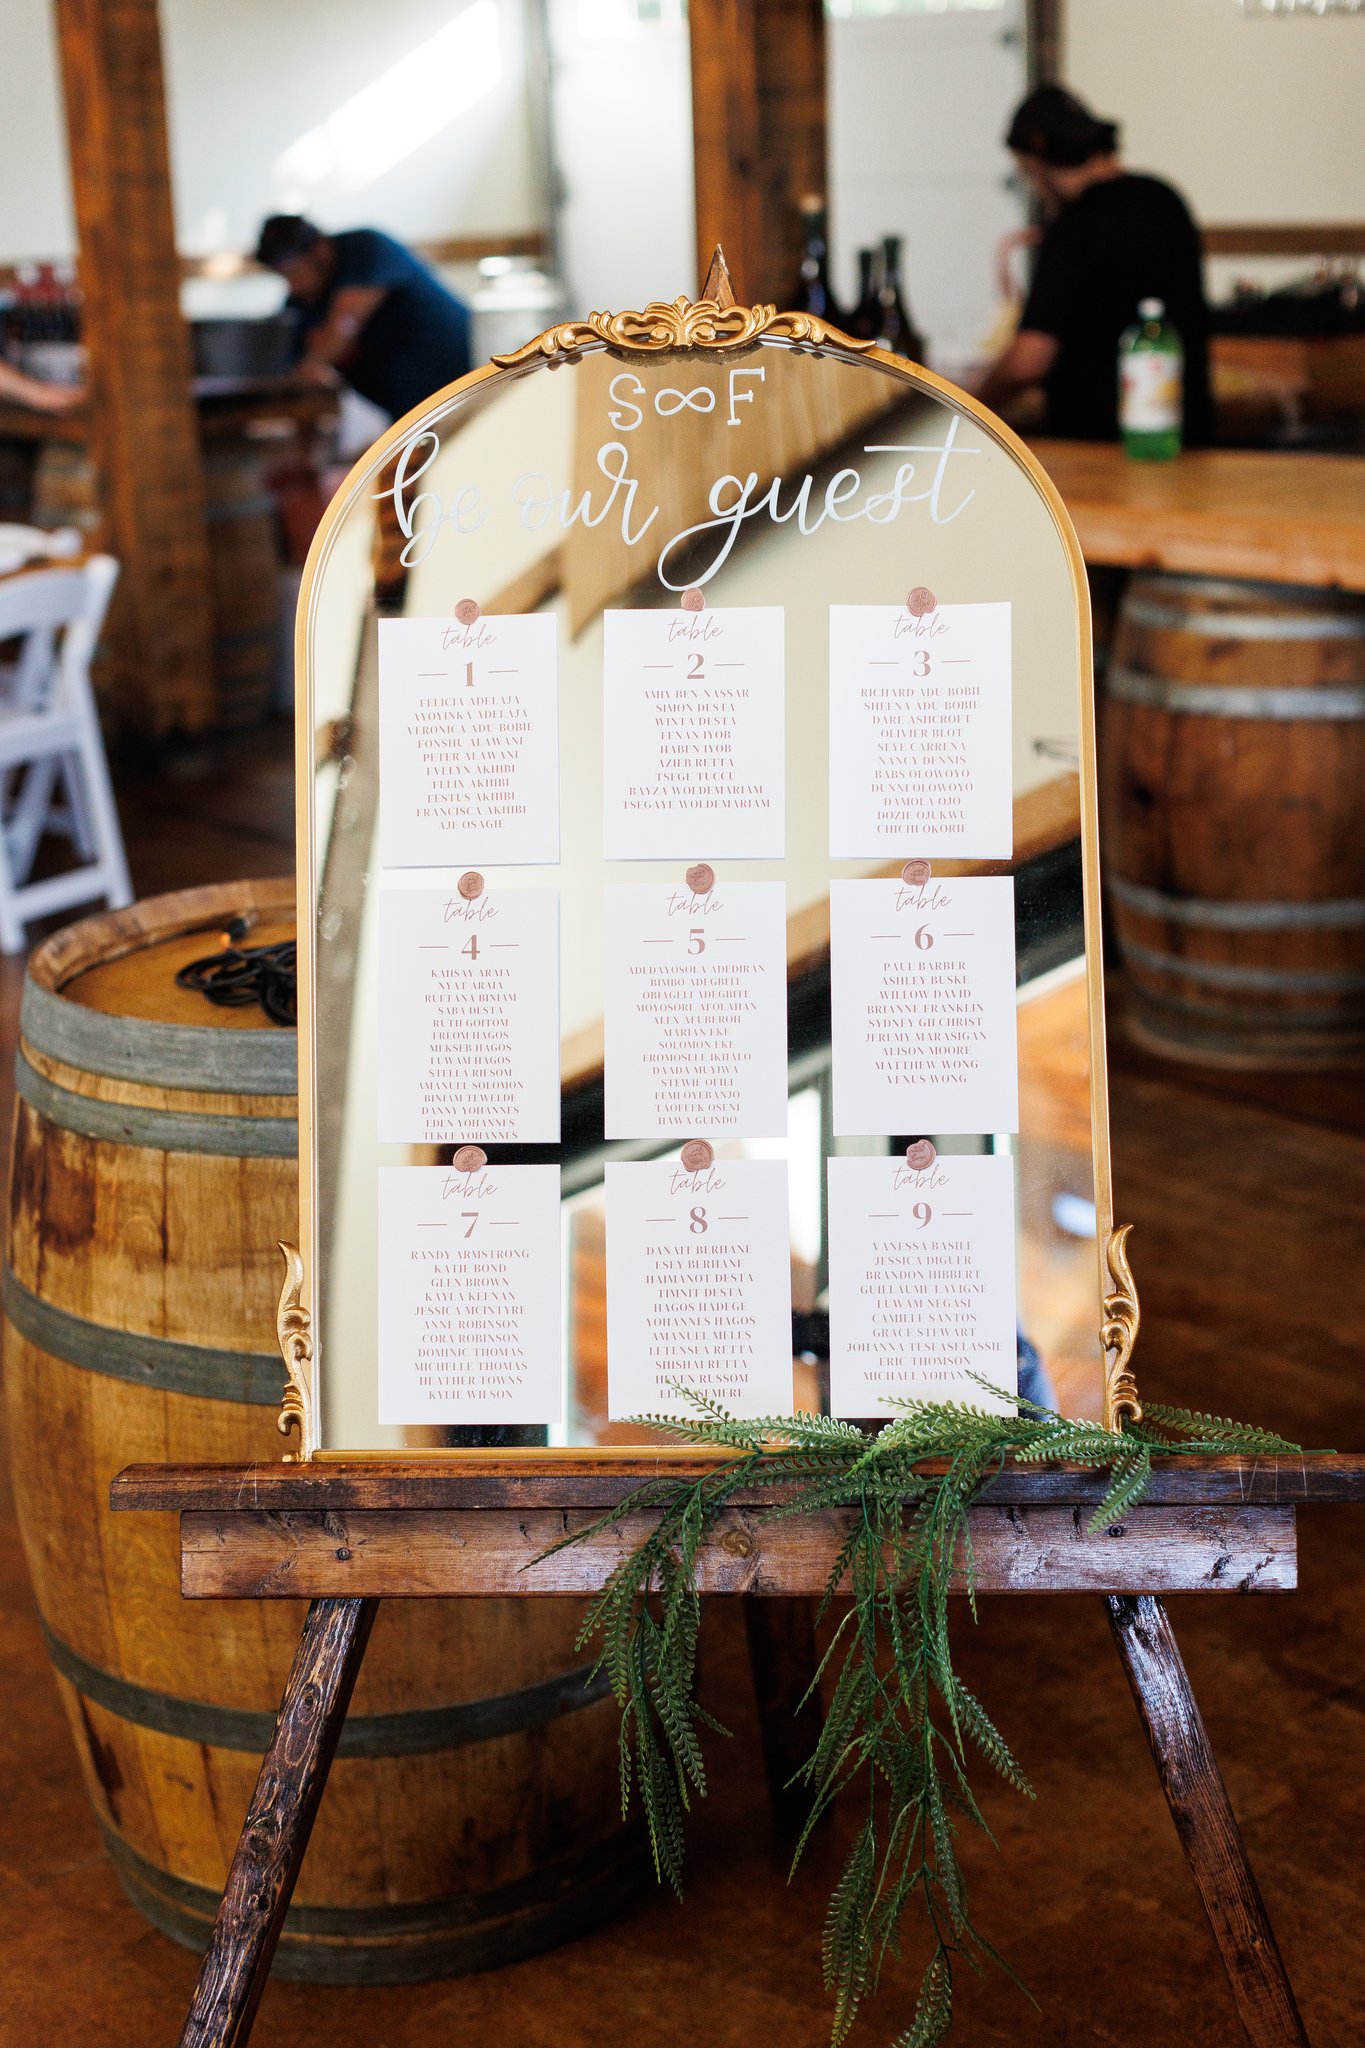 S∞F
be our guest
table
1
FELICIA ADELAJA
AYOYINKA ADELAJA
VERONICA ADU-BOBIE
FONSHU ALAWANI
PETER ALAWANI
EVELYN AKHIBI
FELIX AKHIBI
FESTUS AKHIBI
FRANCISCA AKHIBI
AJE OSAGIE
table
2
AMIY BEN-NASSAR
SIMON DESTA
WINTA DESTA
FENAN IYOB
HABEN IYOB
AZIEB RETTA
TSEGE TUCCU
BAYZA WOLDEMARIAM
TSEGAYE WOLDEMARIAM
table
3
RICHARD ADU-BOBIE
SHEENA ADU-BOBIE
DARE ASHCROFT
OLIVIER BLOT
SEYE CARRENA
NANCY DENNIS
BABS OLOWOYO
DUNNI OLOWOYO
DAMOLA OJO
DOZIE OJUKWU
CHICHI OKORIE
table
4
KAHSAY ARAIA
NYAT ARAIA
RUFTANA BINIAM
SABA DESTA
RUTH GOITOM
FREOM HAGOS
MEKSEB HAGOS
LUWAM HAGOS
STELLA RIESOM
AMANUEL SOLOMON
BINIAM TEWELDE
DANNY YOHANNES
EDEN YOHANNES
TEKLE YOHANNES
table
5
ADEDAYOSOLA ADEDIRAN
BIMBO ADEGBITE
OBIAGELI ADEGBITE
MOYOSORE AFOLAHAN
ALEX AFUBEROH
MARIAN EKE
SOLOMON EKE
EROMOSELE IKHALO
DAADA MUYIWA
STEWIE OFILI
FEMI OYEBANJO
TAOFEEK OSENI
HAWA GUINDO
table
6
PAUL BARBER
ASHLEY BUSKE
WILLOW DAVID
BRIANNE FRANKLIN
SYDNEY GILCHRIST
JEREMY MARASIGAN
ALISON MOORE
MATTHEW WONG
VENUS WONG
table
7
RANDY ARMSTRONG
KATIE BOND
GLEN BROWN
KAYLA KEENAN
JESSICA MCINTYRE
ANNE ROBINSON
CORA ROBINSON
DOMINIC THOMAS
MICHELLE THOMAS
HEATHER TOWNS
KYLIE WILSON
table
8
DANAIT BERHANE
ESEY BERHANE
HAIMANOT DESTA
TIMNIT DESTA
HAGOS HADEGE
YOHANNES HAGOS
AMANUEL MELES
LETENSEA RETTA
SHISHAI RETTA
HEVEN RUSSOM
SEMERE
table
9
VANESSA BASILE
JESSICA DIGUER
BRANDON HIBBERT
GUILLAUME LAVIGNE
LUWAM NEGASI
CAMILLE SANTOS
GRACE STEWART
JOHANNA TESFASELASSIE
ERIC THOMSON
MICHAEL YOHANNES